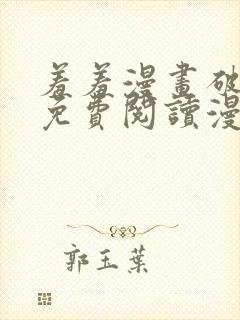 羞羞漫畫破
免費閱讀漫
郭玉葉